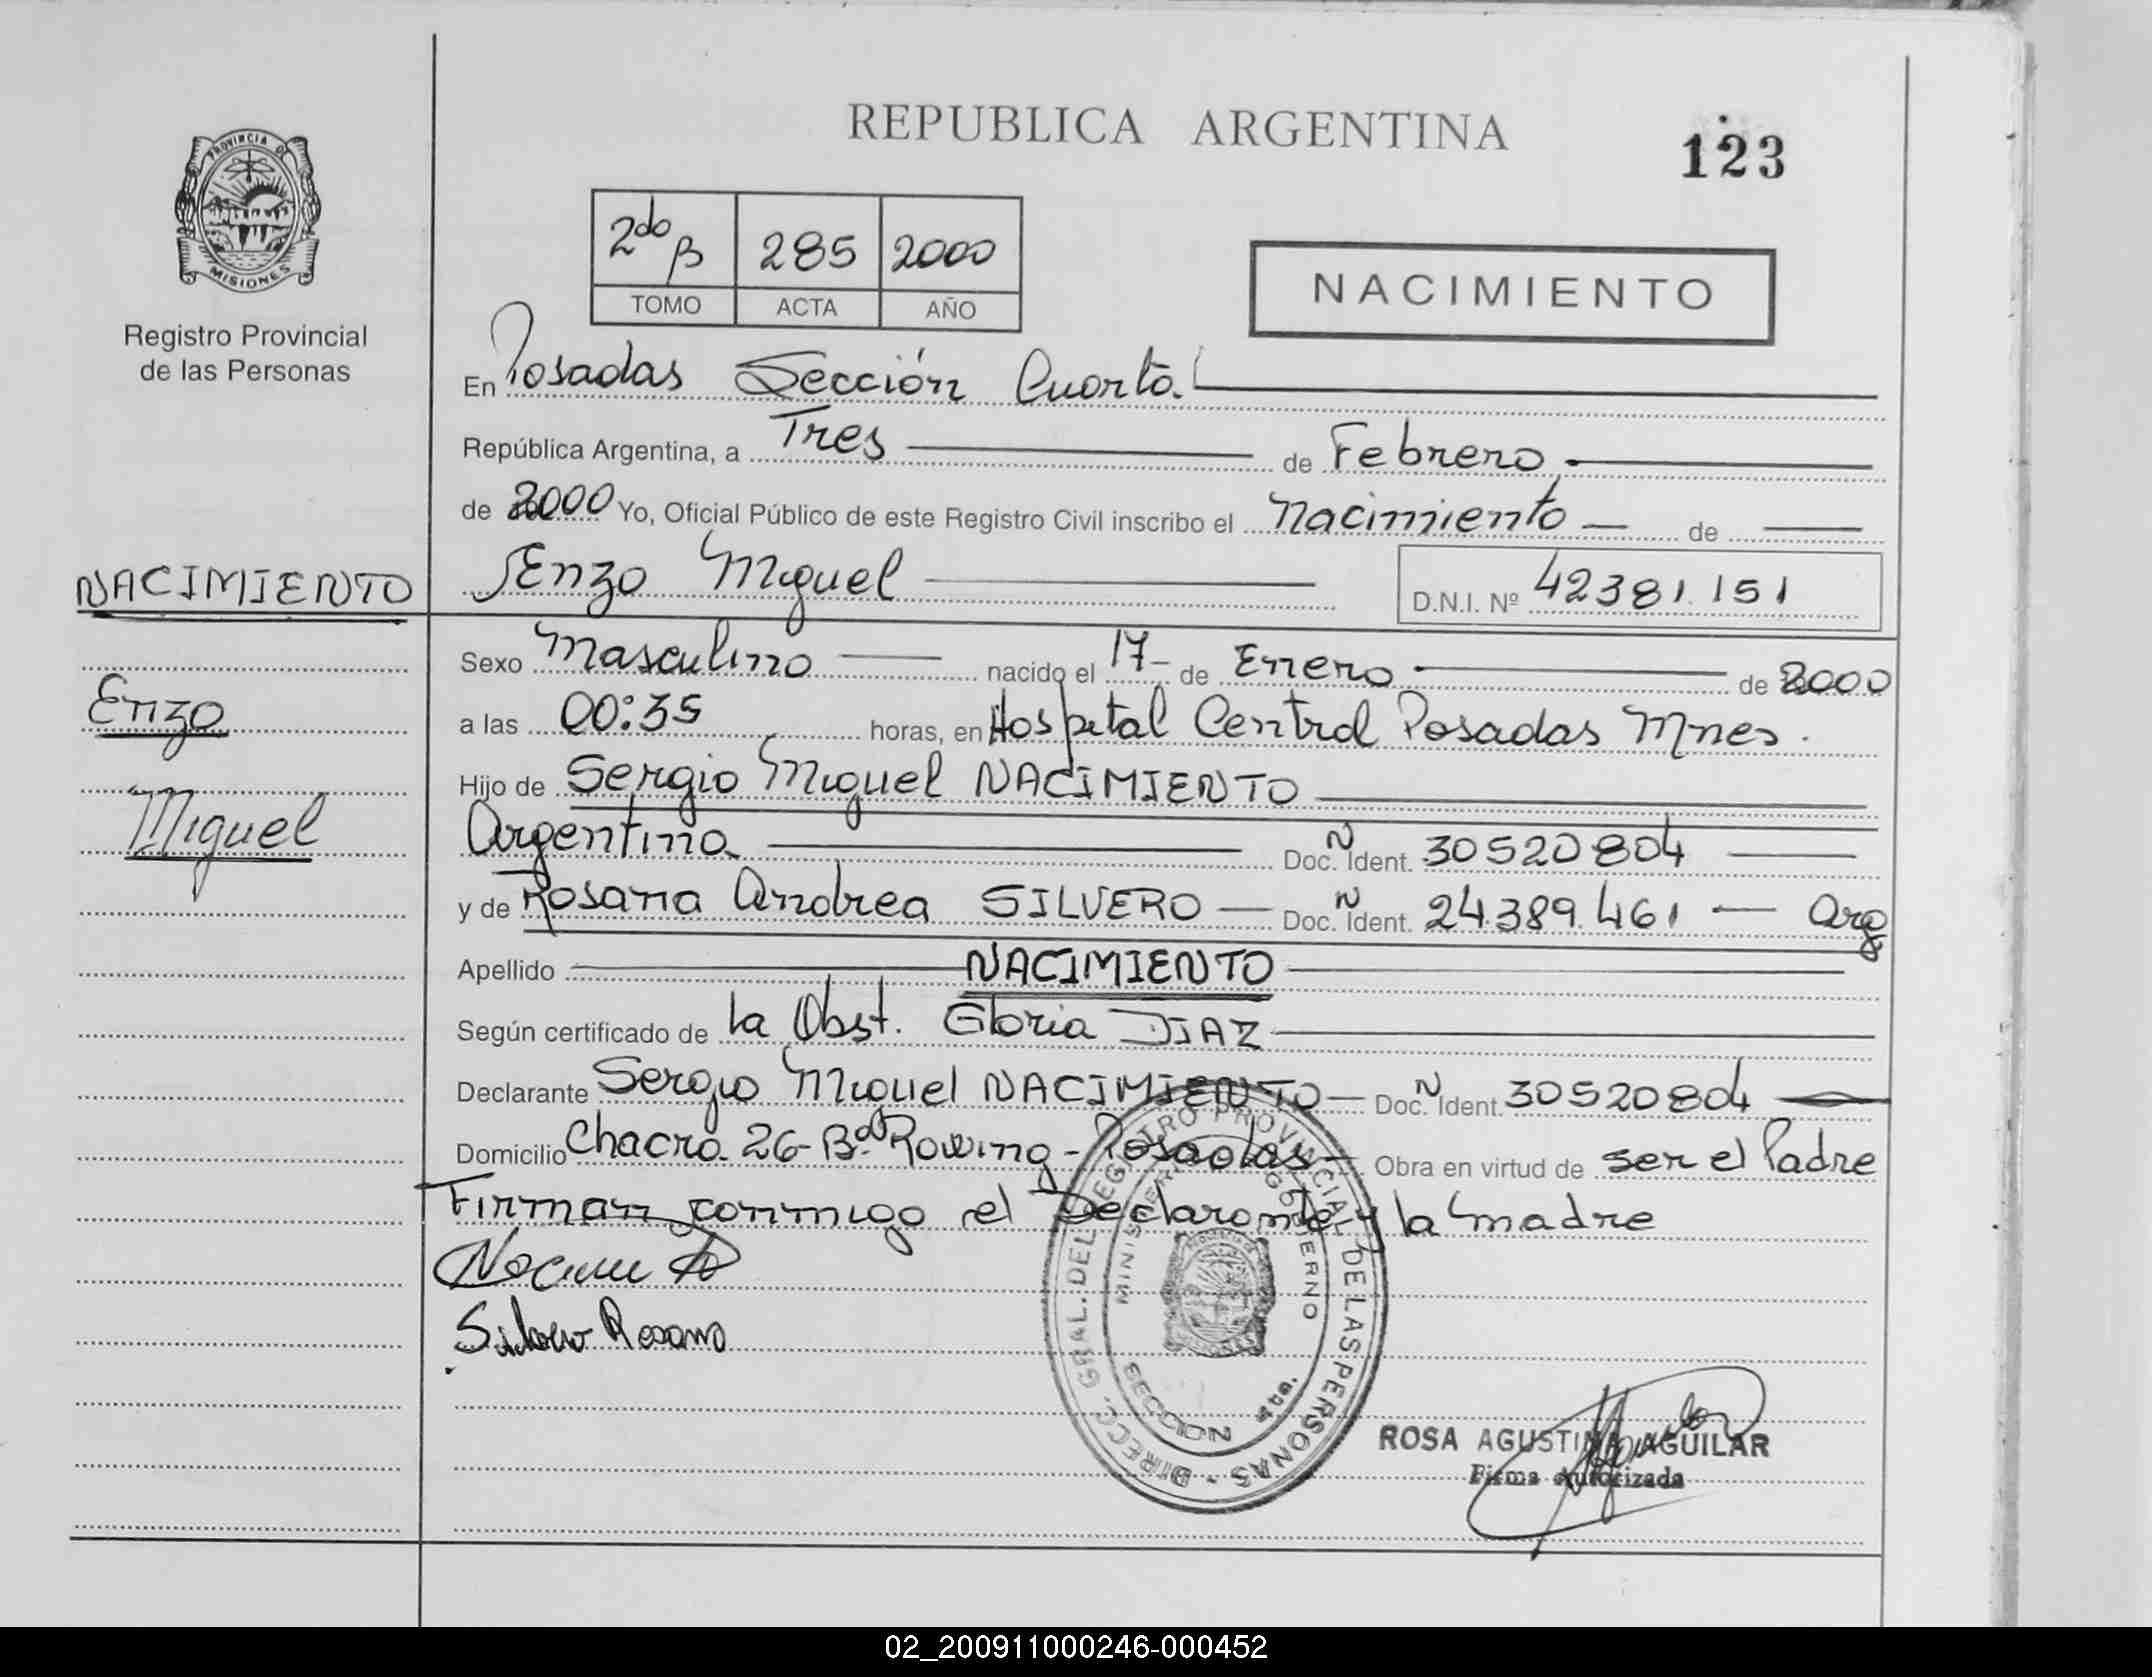 REPUBLICA ARGENTINA
123
PROVINCIA DE
MISIONES
Registro Provincial
de las Personas
2do B 285 2000
TOMO ACTA AÑO
NACIMIENTO
En Posadas Sección Cuarta.
República Argentina, a Tres de Febrero
de 2000 Yo, Oficial Público de este Registro Civil inscribo el Nacimiento de
NACIMIENTO
Enzo Miguel
D.N.I. Nº 42381.151
Sexo Masculino nacido el 17 de Enero de 2000
Enzo
a las 00:35 horas, en Hospital Central Posadas Mnes.
Hijo de Sergio Miguel NACIMIENTO
Miguel
Argentino Doc. Ident. Nº 30520804
y de Rosana Andrea SILVERO Doc. Ident. Nº 24.389.461 Arg
Apellido NACIMIENTO
Según certificado de la Obst. Gloria DIAZ
Declarante Sergio Miguel NACIMIENTO Doc. Ident. Nº 30520804
Domicilio Chacra 26-Bº Rowing - Posadas Obra en virtud de ser el Padre
Firman conmigo el Declarante y la madre
Silvero Rosana
DIRECC. GRAL. DEL REGISTRO PROVINCIAL DE LAS PERSONAS
MINISTERIO GOBIERNO
SECCION 4ta.
ROSA AGUSTINA AGUILAR
Firma Autorizada
02_200911000246-000452